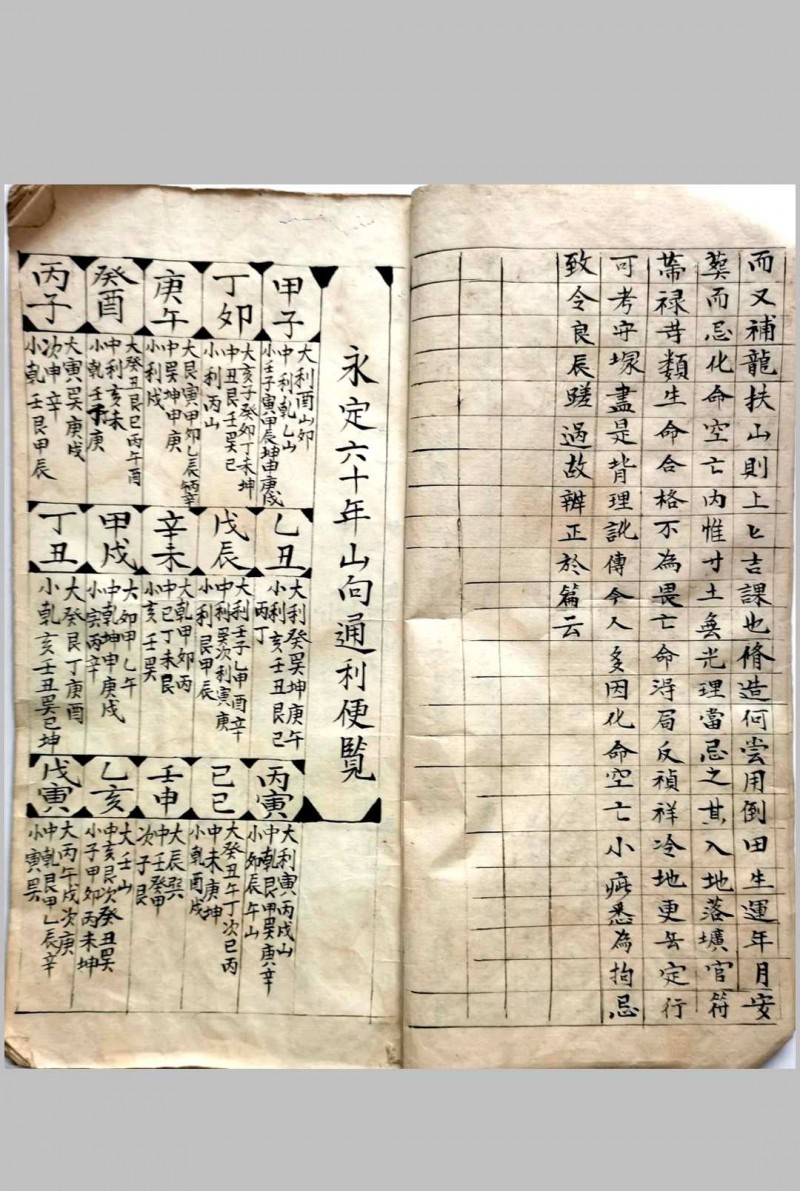 而又補龍扶山則上七吉課也脩造何嘗用倒田生運年月安
葬而忌化命空亡内惟寸土無光理當忌之其入地落壙官符
蒂禄等類生命合格不為畏亡命淂局反禎祥冷地更無定行
可考守塚盡是背理訛傳今人多因化命空亡小疵悉為拘忌
致令良辰蹉過故辨正於篇云
永定六十年山向通利便覧
甲子
大利酉山卯
中利乾乙山
小壬子寅甲辰坤申庚戌
乙丑
大利癸巽坤庚午
小利亥壬丑艮己
丙丁
丙寅
大利寅丙戌山
中乾艮甲巽庚辛
小卯辰午山
丁卯
大亥子癸卯丁未坤
中丑艮壬巽巳
小利丙山
戊辰
大利壬子乙申酉辛
中利巽次利寅庚
小利艮甲辰
己巳
大癸丑午丁次巳丙
中未庚坤
小乾酉戌
庚午
大艮寅甲卯乙辰丙辛
中巽坤申庚
小利戌
辛未
大乾甲卯丙
中巳丁未艮
小亥壬巽
壬申
大辰巽
中壬癸甲
次子艮
癸酉
大癸丑艮巳丙午酉
中利亥未
小乾壬子庚
甲戌
大卯甲乙午
中乾坤申庚戌
小寅丙辛
乙亥
大壬山
中亥艮次癸丑巽
小子甲卯丙未坤
丙子
大寅巽庚戌
次申辛
小乾壬艮甲辰
丁丑
大癸艮丁庚酉
小乾亥壬丑巽巳坤
戊寅
大丙午戌次庚
中乾艮甲乙辰辛
小寅巽